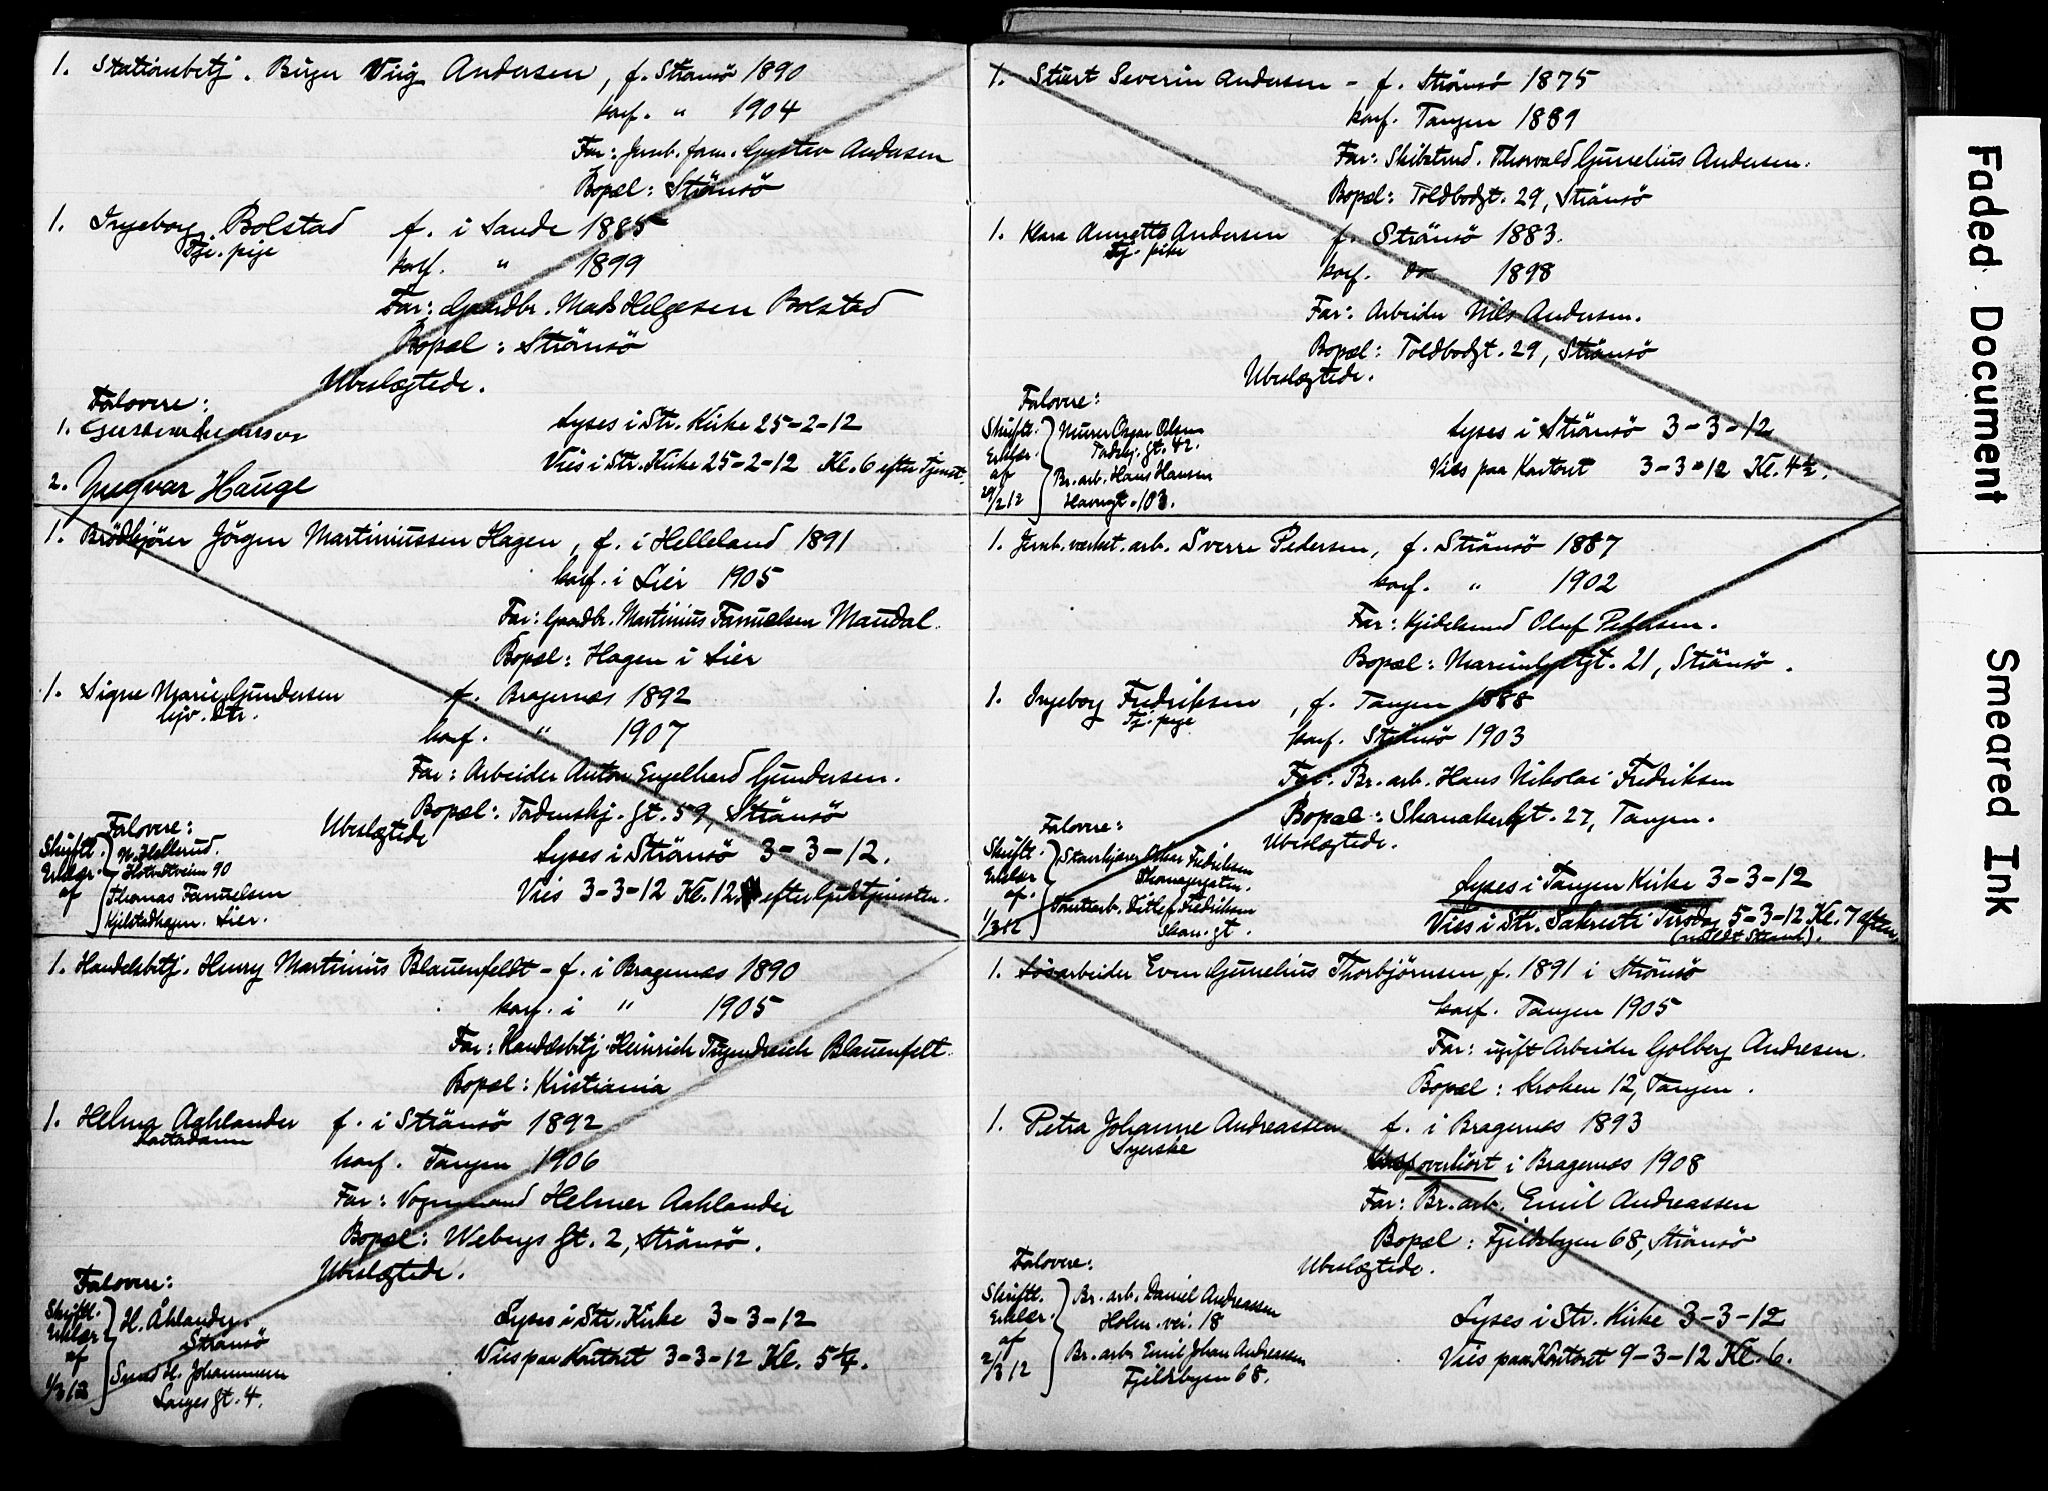 1. Stationsbetj. Birger Viig Andersen, f. Strømsö 1890
konf. " 1904
Far: Jernb.form. Gustav Andersen
Bopæl: Strömsö
1. Ingeborg Bolstad f. i Sande 1885
Tje. pige
konf. " 1899
Far: Gaardbr. Mads Helgesen Bolstad
Bopæl: Strömsö
Ubeslægtede.
Forlovere:
1. Gustav Andersen
Lyses i Str. Kirke 25-2-12
Vies i Str. Kirke 25-2-12 Kl. 6 efter Tjenst.
2. Yngvar Hauge
1. Brödkjörer Jörgen Martiniussen Hagen, f. i Helleland 1891
konf. i Lier 1905
Far: Gaardbr. Martinius Fanuelsen Maudal.
Bopæl: Hagen i Lier
1. Signe Marie Gundersen f. Bragernæs 1892
hjv. Dtr.
konf. " 1907
Far: Arbeider Anton Engelhard Gundersen.
Bopæl: Tordenskj. gt. 59, Strömsö
Ubeslægtede
Forlovere:
Skriftl. Erklær. af
N. Hellerud.
Holmestveien 90
Thomas Fanuelsen
Kjelstadhagen. Lier.
Lyses i Strömsö 3-3-12.
Vies 3-3-12 Kl. 12 efter Gudstjenesten.
1. Handelsbetj. Henry Martinius Blauenfeldt - f. i Bragernæs 1890
konf. i " 1905
Far: Handelsbetj. Heinrich Tugendreich Blauenfelt.
Bopæl: Kristiania
1. Helma Aahlander f. i Strömsö 1892
konf. Tangen 1906
Far: Vognmand Helmer Aahlander
Bopæl: Webergs Gt. 2, Strömsö.
Ubeslægtede.
Forlovere:
Skriftl. Erklær. af 1/3 12
H. Åhlander.
Strömsö
H. Johannesen
Langes Gt. 4.
Lyses i Str. Kirke 3-3-12
Vies paa Kontoret 3-3-12 Kl. 5 1/4.
1. Sturt Severin Andersen - f. Strömsö 1875
konf. Tangen 1889
Far: Skibstmd. Thorvald Gunelius Andersen.
Bopæl: Toldbodgt. 29, Strömsö
1. Klara Annette Andersen f. Strömsö 1883.
Tj. pike
konf. do 1898
Far: Arbeider Nils Andersen.
Bopæl: Toldbodgt. 29, Strömsö
Ubeslægtede.
Forlovere:
Skriftl. Erklær. af 29/2 12
Murer Oscar Olsen
Tordskj. Gt. 42.
Br. arb. Hans Hansen
Havnegt. 103.
Lyses i Strömsö 3-3-12
Vies paa Kontoret 3-3-12 Kl. 4 1/2.
1. Jernb. værkst. arb. Sverre Pedersen, f. Strömsö 1887
konf. " 1902
Far: Kjedelsmed Oluf Pedersen.
Bopæl: Marienlystgt. 21, Strömsö.
1. Ingeborg Fredriksen, f. Tangen 1888
Tj. pige
konf. Strömsö 1903
Far: Br. arb. Hans Nikolai Fredriksen
Bopæl: Skanskengt. 27, Tangen.
Ubeslægtede.
Forlovere:
Skriftl. Erklær af. 1/3 12
Oskar Fredriksen
Tomtearb. Ditlef Fredriksen
Skan. gt.
Lyses i Tangen Kirke 3-3-12
Vies i Str. Sakristi Tirsdag 5-3-12 Kl. 7 aften.
1. Løsarbeider Even Gunelius Thorbjörnsen, f. 1891 i Strömsö
konf. Tangen 1905
Far: ugift Arbeider Golberg Andresen.
Bopæl: Kroken 12, Tangen.
1. Petra Johanne Andreassen f. i Bragernæs 1893
Syerske
overhört i Bragernæs 1908
Far: Br. arb. Emil Andreassen
Bopæl: Fjeldbyen 68, Strömsö
Ubeslægtede.
Forlovere:
Skriftl. Erklær. af 2/3 12
Br. arb. Daniel Andreassen
Holm. vei. 18
Br. arb. Emil Johan Andreassen
Fjeldbyen 68.
Lyses i Str. Kirke 3-3-12
Vies paa Kontoret 9-3-12 Kl. 6.
Faded Document
Smeared Ink